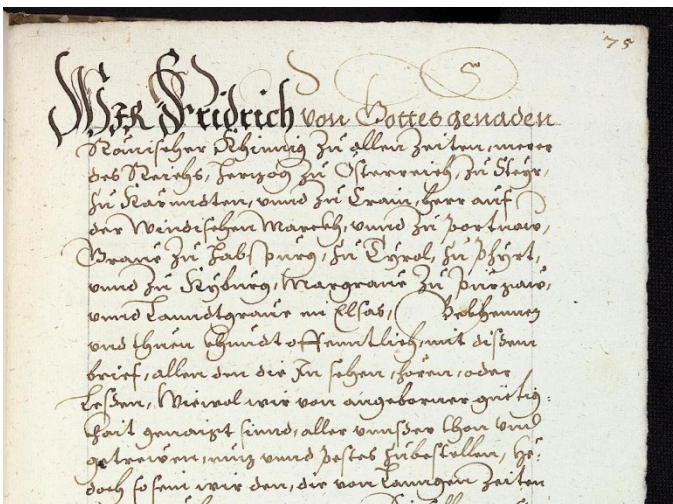 75
Wir Fridrich von Gottes genaden
Römischer Khünnig zu allen Zeiten, merer
des Reichs, Herzog zu Österreich, zu Steyr,
zu Kärnndten, vnnd zu Crain, herr auf
der Windischen Marckh, vnnd zu Portnaw,
Graue zu Habspurg, zu Tyrol, zu Phyrt,
vnnd zu Kyburg, Margraue zu Purgaw,
vnnd Lanndtgraue im Elsas, Bekhennen
vnd thuen khundt offenntlich, mit disem
brief, allen den die In sehen, hören, oder
Lesen, Wiewol wir von angeborner güetig:
khait genaigt sinnd, aller vnnser
getrewen, nuz vnnd pestes zubestellen, Ye:
doch so sein wir den, die von Lanngen Zeiten